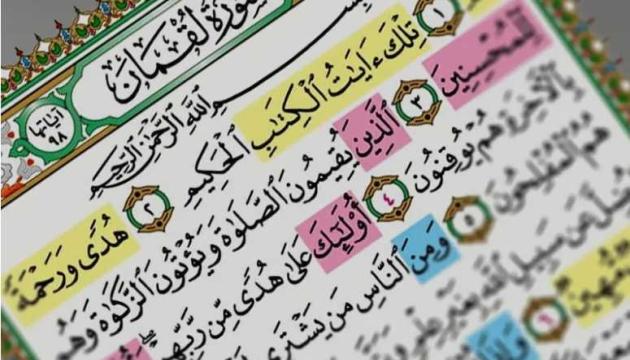 سُورَةُ لُقْمَانَ
آيَاتُهَا ٩٨
بِسْمِ ٱللَّهِ ٱلرَّحْمَٰنِ ٱلرَّحِيمِ
١ تِلْكَ ءَايَٰتُ ٱلْكِتَٰبِ ٱلْحَكِيمِ ٢ هُدًى وَرَحْمَةً
لِّلْمُحْسِنِينَ ٣ ٱلَّذِينَ يُقِيمُونَ ٱلصَّلَوٰةَ وَيُؤْتُونَ ٱلزَّكَوٰةَ وَهُم
بِٱلْأَخِرَةِ هُمْ يُوقِنُونَ ٤ أُو۟لَٰٓئِكَ عَلَىٰ هُدًى مِّن رَّبِّهِمْ
هُمُ ٱلْمُفْلِحُونَ ٥ وَمِنَ ٱلنَّاسِ مَن يَشْتَرِى
عَن سَبِيلِ ٱللَّهِ بِغَيْرِ عِلْمٍ
مُّهِينٌ ٦ وَإِذَا